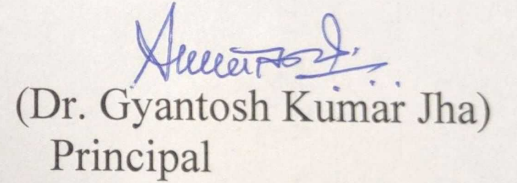 (Dr. Gyantosh Kumar Jha)
Principal